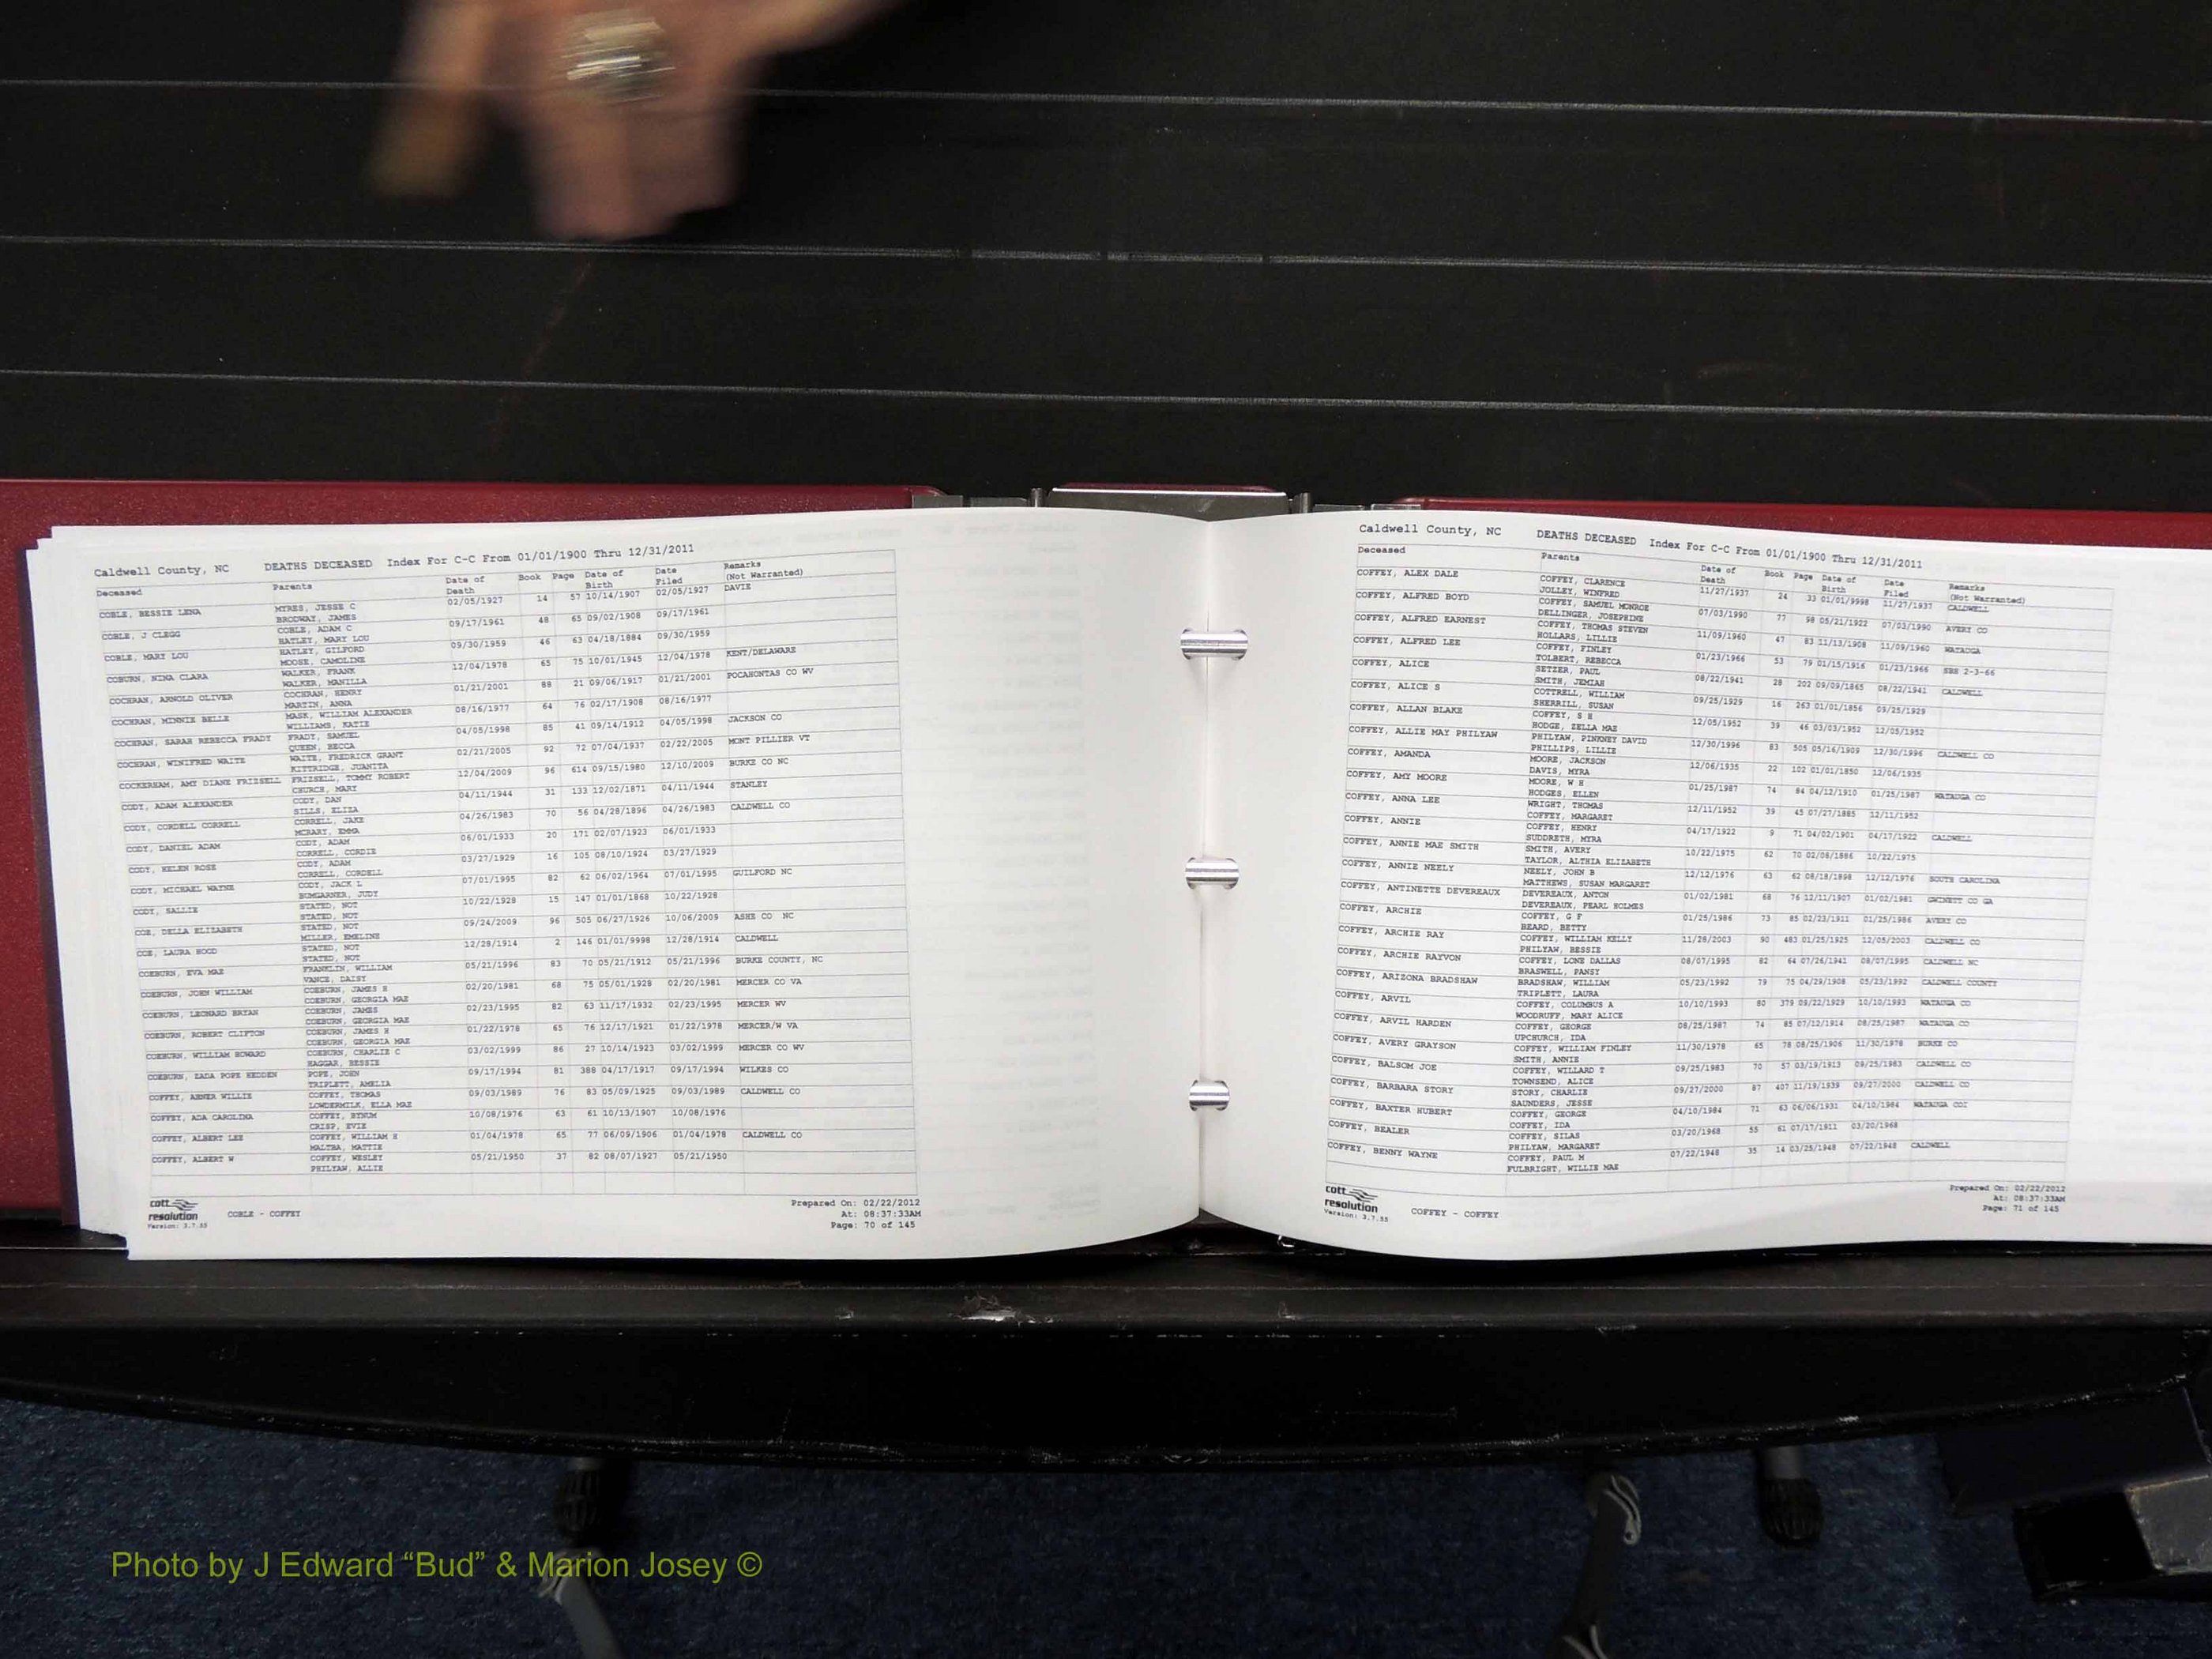 Caldwell County, NC DEATHS DECEASED Index For C-C From 01/01/1900 Thru 12/31/2011
Deceased Parents Date of Death Book Page Date of Birth Date Filed Remarks (Not Warranted)
COBLE, BESSIE LENA MYRES, JESSE C 02/05/1927 14 57 10/14/1907 02/05/1927 DAVIE
BRODWAY, JAMES
COBLE, J CLEGG COBLE, ADAM C 09/17/1961 48 65 09/02/1908 09/17/1961
HATLEY, MARY LOU
COBLE, MARY LOU HATLEY, GILFORD 09/30/1959 46 63 04/18/1884 09/30/1959
MOOSE, CAMOLINE
COBURN, NINA CLARA WALKER, FRANK 12/04/1978 65 75 10/01/1945 12/04/1978 KENT/DELAWARE
WALKER, MANILLA
COCHRAN, ARNOLD OLIVER COCHRAN, HENRY 01/21/2001 88 21 09/06/1917 01/21/2001 POCAHONTAS CO WV
MARTIN, ANNA
COCHRAN, MINNIE BELLE MASK, WILLIAM ALEXANDER 08/16/1977 64 76 02/17/1908 08/16/1977
WILLIAMS, KATIE
COCHRAN, SARAH REBECCA FRADY FRADY, SAMUEL 04/05/1998 85 41 09/14/1912 04/05/1998 JACKSON CO
QUEEN, BECCA
COCHRAN, WINIFRED WAITE WAITE, FREDRICK GRANT 02/21/2005 92 72 07/04/1937 02/22/2005 MONT PILLIER VT
KITTRIDGE, JUANITA
COCKERHAM, AMY DIANE FRIZSELL FRIZSELL, TOMMY ROBERT 12/04/2009 96 614 09/15/1980 12/10/2009 BURKE CO NC
CHURCH, MARY
CODY, ADAM ALEXANDER CODY, DAN 04/11/1944 31 133 12/02/1871 04/11/1944 STANLEY
SILLS, ELIZA
CODY, CORDELL CORRELL CORRELL, JAKE 04/26/1983 70 56 04/28/1896 04/26/1983 CALDWELL CO
MCRARY, EMMA
CODY, DANIEL ADAM CODY, ADAM 06/01/1933 20 171 02/07/1923 06/01/1933
CORRELL, CORDIE
CODY, HELEN ROSE CODY, ADAM 03/27/1929 16 105 08/10/1924 03/27/1929
CORRELL, CORDELL
CODY, MICHAEL WAYNE CODY, JACK L 07/01/1995 82 62 06/02/1964 07/01/1995 GUILFORD NC
BUMGARNER, JUDY
CODY, SALLIE STATED, NOT 10/22/1928 15 147 01/01/1868 10/22/1928
STATED, NOT
COE, DELLA ELIZABETH STATED, NOT 09/24/2009 96 505 06/27/1926 10/06/2009 ASHE CO NC
MILLER, EMELINE
COE, LAURA HOOD STATED, NOT 12/28/1914 2 146 01/01/9998 12/28/1914 CALDWELL
STATED, NOT
COEBURN, EVA MAE FRANKLIN, WILLIAM 05/21/1996 83 70 05/21/1912 05/21/1996 BURKE COUNTY, NC
VANCE, DAISY
COEBURN, JOHN WILLIAM COEBURN, JAMES H 02/20/1981 68 75 05/01/1928 02/20/1981 MERCER CO VA
COEBURN, GEORGIA MAE
COEBURN, LEONARD BRYAN COEBURN, JAMES 02/23/1995 82 63 11/17/1932 02/23/1995 MERCER WV
COEBURN, GEORGIA MAE
COEBURN, ROBERT CLIFTON COEBURN, JAMES H 01/22/1978 65 76 12/17/1921 01/22/1978 MERCER/W VA
COEBURN, GEORGIA MAE
COEBURN, WILLIAM HOWARD COEBURN, CHARLIE C 03/02/1999 86 27 10/14/1923 03/02/1999 MERCER CO WV
HAGGAR, BESSIE
COEBURN, ZADA POPE HEDDEN POPE, JOHN 09/17/1994 81 388 04/17/1917 09/17/1994 WILKES CO
TRIPLETT, AMELIA
COFFEY, ABNER WILLIE COFFEY, THOMAS 09/03/1989 76 83 05/09/1925 09/03/1989 CALDWELL CO
LOWDERMILK, ELLA MAE
COFFEY, ADA CAROLINA COFFEY, BYNUM 10/08/1976 63 61 10/13/1907 10/08/1976
CRISP, EVIE
COFFEY, ALBERT LEE COFFEY, WILLIAM H 01/04/1978 65 77 06/09/1906 01/04/1978 CALDWELL CO
MALTBA, MATTIE
COFFEY, ALBERT W COFFEY, WESLEY 05/21/1950 37 82 08/07/1927 05/21/1950
PHILYAW, ALLIE
cott resolution
Version: 3.7.55
COBLE - COFFEY
Prepared On: 02/22/2012
At: 08:37:33AM
Page: 70 of 145
Caldwell County, NC DEATHS DECEASED Index For C-C From 01/01/1900 Thru 12/31/2011
Deceased Parents Date of Death Book Page Date of Birth Date Filed Remarks (Not Warranted)
COFFEY, ALEX DALE COFFEY, CLARENCE 11/27/1937 24 33 01/01/9998 11/27/1937 CALDWELL
JOLLEY, WINFRED
COFFEY, ALFRED BOYD COFFEY, SAMUEL MONROE 07/03/1990 77 98 05/21/1922 07/03/1990 AVERY CO
DELLINGER, JOSEPHINE
COFFEY, ALFRED EARNEST COFFEY, THOMAS STEVEN 11/09/1960 47 83 11/13/1908 11/09/1960 WATAUGA
HOLLARS, LILLIE
COFFEY, ALFRED LEE COFFEY, FINLEY 01/23/1966 53 79 01/15/1916 01/23/1966 SBH 2-3-66
TOLBERT, REBECCA
COFFEY, ALICE SETZER, PAUL 08/22/1941 28 202 09/09/1865 08/22/1941 CALDWELL
SMITH, JEMIAH
COFFEY, ALICE S COTTRELL, WILLIAM 09/25/1929 16 263 01/01/1856 09/25/1929
SHERRILL, SUSAN
COFFEY, ALLAN BLAKE COFFEY, S H 12/05/1952 39 46 03/03/1952 12/05/1952
HODGE, ZELLA MAE
COFFEY, ALLIE MAY PHILYAW PHILYAW, PINKNEY DAVID 12/30/1996 83 505 05/16/1909 12/30/1996 CALDWELL CO
PHILLIPS, LILLIE
COFFEY, AMANDA MOORE, JACKSON 12/06/1935 22 102 01/01/1850 12/06/1935
DAVIS, MYRA
COFFEY, AMY MOORE MOORE, W H 01/25/1987 74 84 04/12/1910 01/25/1987 WATAUGA CO
HODGES, ELLEN
COFFEY, ANNA LEE WRIGHT, THOMAS 12/11/1952 39 45 07/27/1885 12/11/1952
COFFEY, MARGARET
COFFEY, ANNIE COFFEY, HENRY 04/17/1922 9 71 04/02/1901 04/17/1922 CALDWELL
SUDDRETH, MYRA
COFFEY, ANNIE MAE SMITH SMITH, AVERY 10/22/1975 62 70 02/08/1886 10/22/1975
TAYLOR, ALTHIA ELIZABETH
COFFEY, ANNIE NEELY NEELY, JOHN B 12/12/1976 63 62 08/18/1898 12/12/1976 SOUTH CAROLINA
MATTHEWS, SUSAN MARGARET
COFFEY, ANTINETTE DEVEREAUX DEVEREAUX, ANTON 01/02/1981 68 76 12/11/1907 01/02/1981 GWINETT CO GA
DEVEREAUX, PEARL HOLMES
COFFEY, ARCHIE COFFEY, G F 01/25/1986 73 85 02/23/1911 01/25/1986 AVERY CO
BEARD, BETTY
COFFEY, ARCHIE RAY COFFEY, WILLIAM KELLY 11/28/2003 90 483 01/25/1925 12/05/2003 CALDWELL CO
PHILYAW, BESSIE
COFFEY, ARCHIE RAYVON COFFEY, LONE DALLAS 08/07/1995 82 64 07/26/1941 08/07/1995 CALDWELL NC
BRASWELL, PANSY
COFFEY, ARIZONA BRADSHAW BRADSHAW, WILLIAM 05/23/1992 79 75 04/29/1908 05/23/1992 CALDWELL COUNTY
TRIPLETT, LAURA
COFFEY, ARVIL COFFEY, COLUMBUS A 10/10/1993 80 379 09/22/1929 10/10/1993 WATAUGA CO
WOODRUFF, MARY ALICE
COFFEY, ARVIL HARDEN COFFEY, GEORGE 08/25/1987 74 85 07/12/1914 08/25/1987 WATAUGA CO
UPCHURCH, IDA
COFFEY, AVERY GRAYSON COFFEY, WILLIAM FINLEY 11/30/1978 65 78 08/25/1906 11/30/1978 BURKE CO
SMITH, ANNIE
COFFEY, BALSOM JOE COFFEY, WILLARD T 09/25/1983 70 57 03/19/1913 09/25/1983 CALDWELL CO
TOWNSEND, ALICE
COFFEY, BARBARA STORY STORY, CHARLIE 09/27/2000 87 407 11/19/1939 09/27/2000 CALDWELL CO
SAUNDERS, JESSE
COFFEY, BAXTER HUBERT COFFEY, GEORGE 04/10/1984 71 63 06/06/1931 04/10/1984
COFFEY, IDA
COFFEY, BEALER COFFEY, SILAS 03/20/1968 55 61 07/17/1911 03/20/1968
PHILYAW, MARGARET
COFFEY, BENNY WAYNE COFFEY, PAUL M 07/22/1948 35 14 03/25/1948 07/22/1948 CALDWELL
FULBRIGHT, WILLIE MAE
cott resolution
Version: 3.7.55
COFFEY - COFFEY
Prepared On: 02/22/2012
At: 08:37:33AM
Page: 71 of 145
Photo by J Edward “Bud” & Marion Josey ©